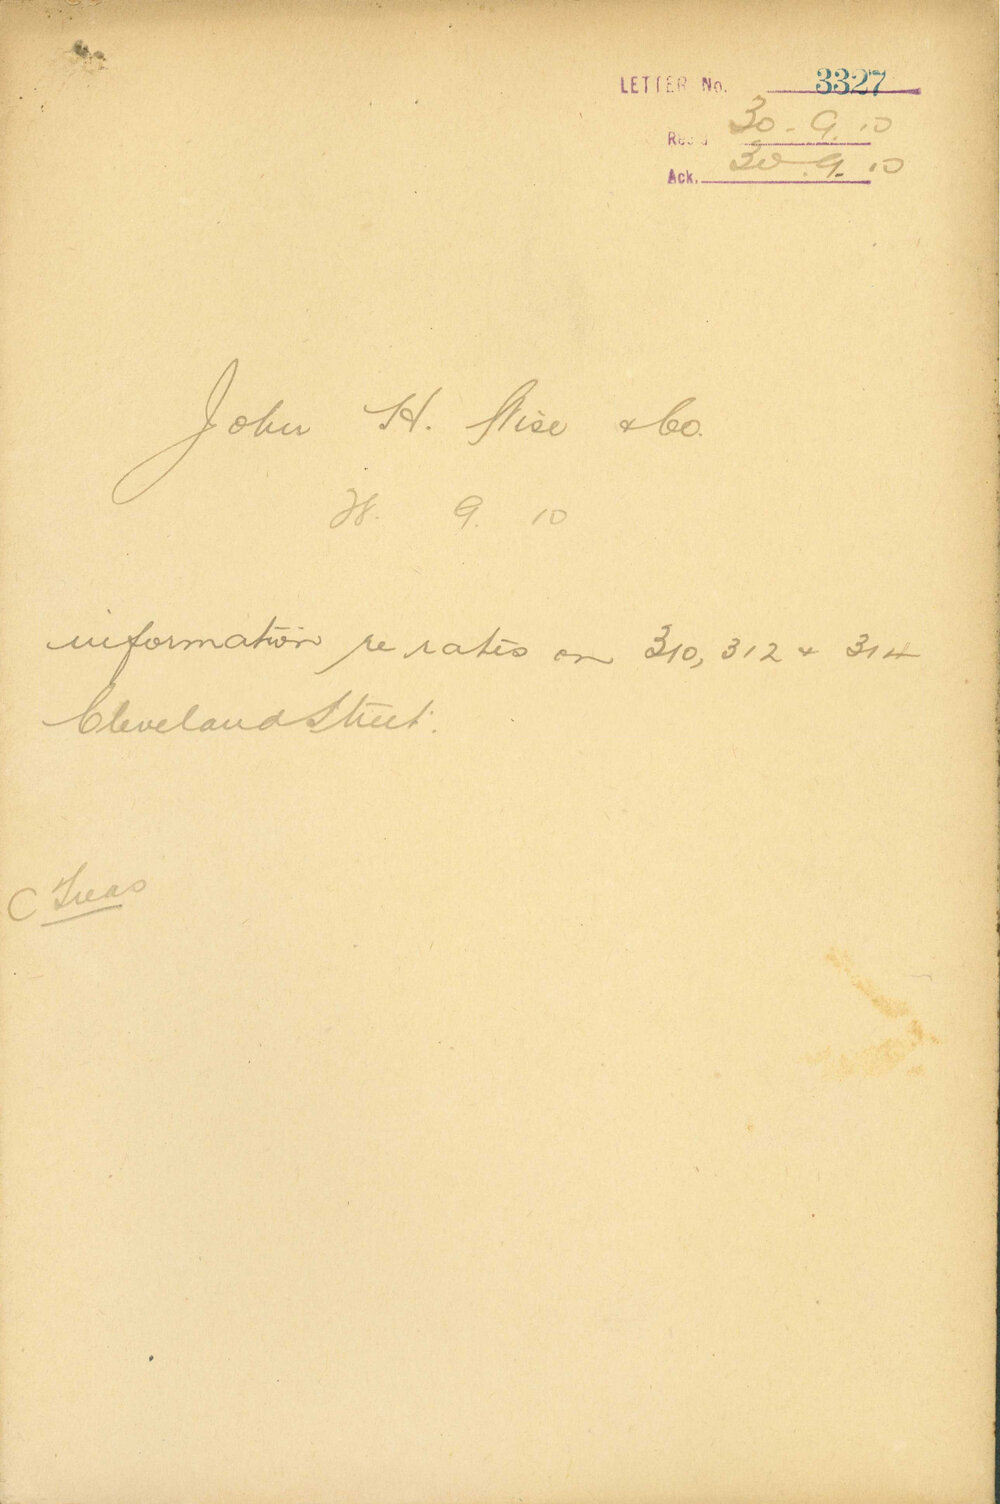 LETTER No. 3327
Rec'd 30-9.10
Ack. 30.9.10
John H. Wise & Co.
9. 10
information re rates on 310, 312 & 314
Cleveland Street.
C Treas